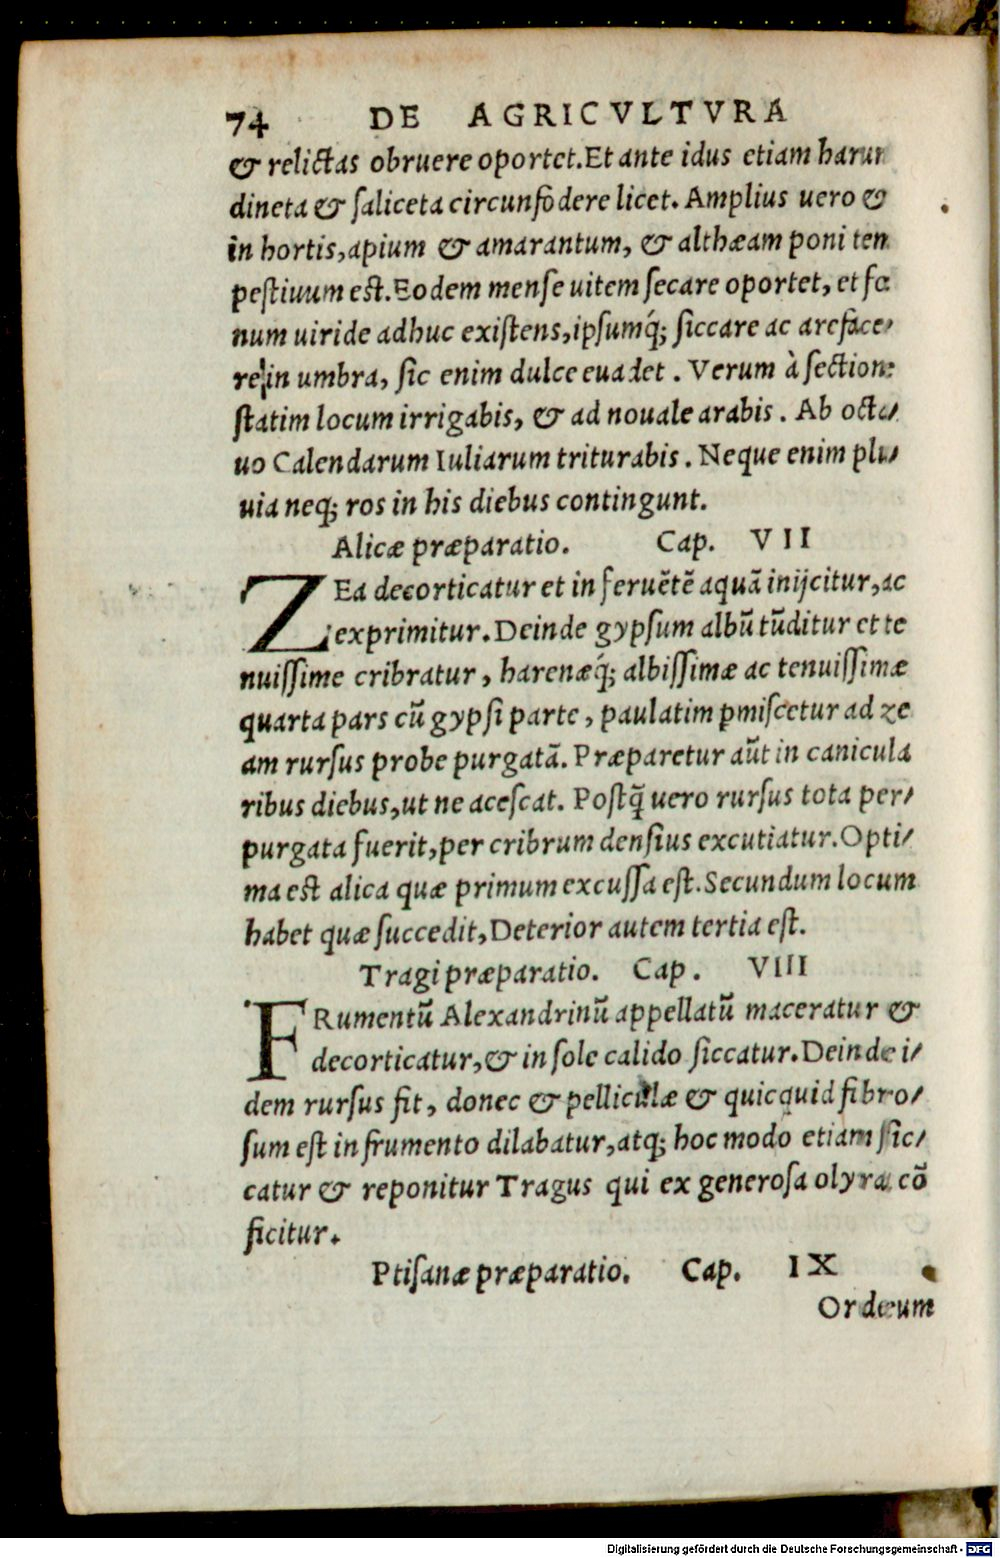 74 DE AGRICVLTVRA
& relictas obruere oportet. Et ante idus etiam harun
dineta & ſaliceta circunfodere licet. Amplius uero &
in hortis, apium & amarantum, & althæam poni tem
peſtiuum eſt. Eodem menſe uitem ſecare oportet, et fœ
num uiride adhuc exiſtens, ipſumq́; ſiccare ac areface/
re in umbra, ſic enim dulce euadet. Verum à ſectione
ſtatim locum irrigabis, & ad nouale arabis. Ab octa/
uo Calendarum Iuliarum triturabis. Neque enim plu/
uia neq; ros in his diebus contingunt.
Alicæ præparatio. Cap. VII
ZEa decorticatur et in feruētē aquā inijcitur, ac
exprimitur. Deinde gypſum albū tūditur et te
nuiſſime cribratur, harenæq́; albiſſimæ ac tenuiſſimæ
quarta pars cū gypſi parte, paulatim pmiſcetur ad ze
am rurſus probe purgatā. Præparetur aūt in canicula
ribus diebus, ut ne aceſcat. Poſtq̃ uero rurſus tota per/
purgata fuerit, per cribrum denſius excutiatur. Opti/
ma eſt alica quæ primum excuſſa eſt. Secundum locum
habet quæ ſuccedit, Deterior autem tertia eſt.
Tragi præparatio. Cap. VIII
FRumentū Alexandrinū appellatū maceratur &
decorticatur, & in ſole calido ſiccatur. Deinde i/
dem rurſus fit, donec & pelliculæ & quicquid fibro/
ſum eſt in frumento dilabatur, atq; hoc modo etiam ſic/
catur & reponitur Tragus qui ex generoſa olyra cō
ficitur.
Ptiſanæ præparatio. Cap. IX
Ordeum
Digitalisierung gefördert durch die Deutsche Forschungsgemeinschaft - DFG